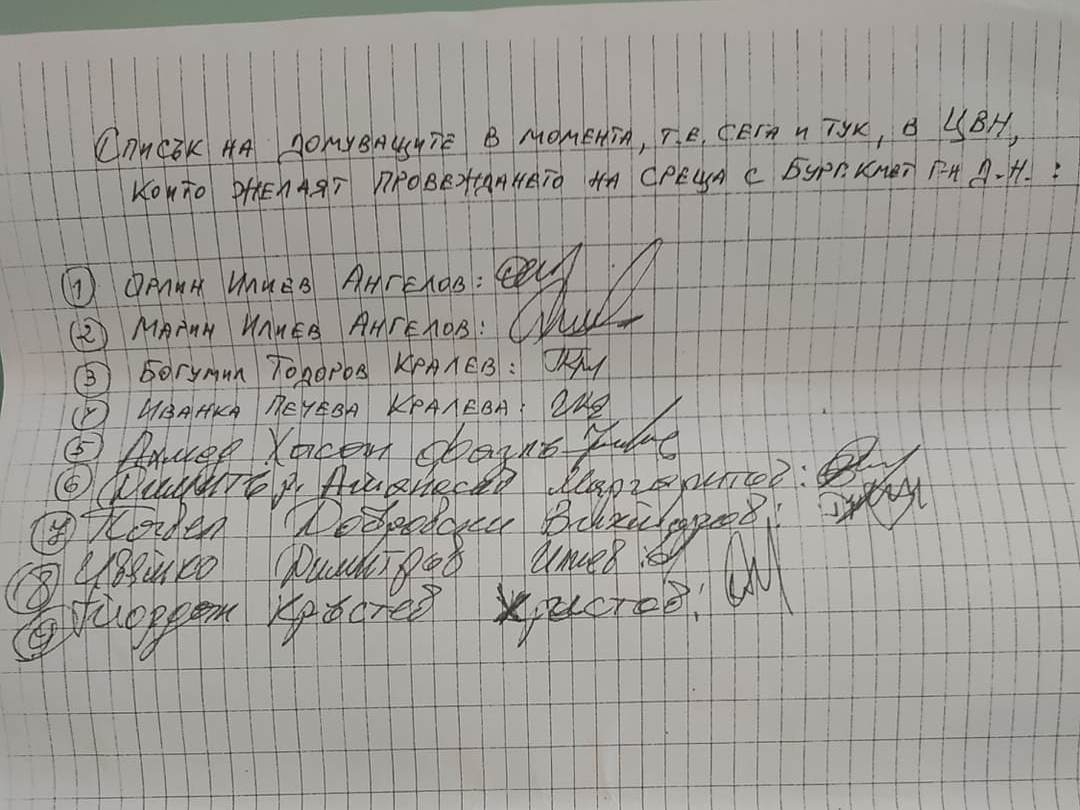 Списък на домуващите в момента, т.е. сега и тук, в ЦВН,
които желаят провеждането на среща с Бург. кмет г-н Д.Н. :
1 Орлин Илиев Ангелов:
2 Марин Илиев Ангелов:
3 Богумил Тодоров Кралев:
4 Иванка Печева Кралева:
5 Ахмед Хасан
6 Димитър Атанасов Маргаритов:
7 Павел Добровски
8 Цвятко Димитров Илиев:
9 Йордан Кръстев Христов: